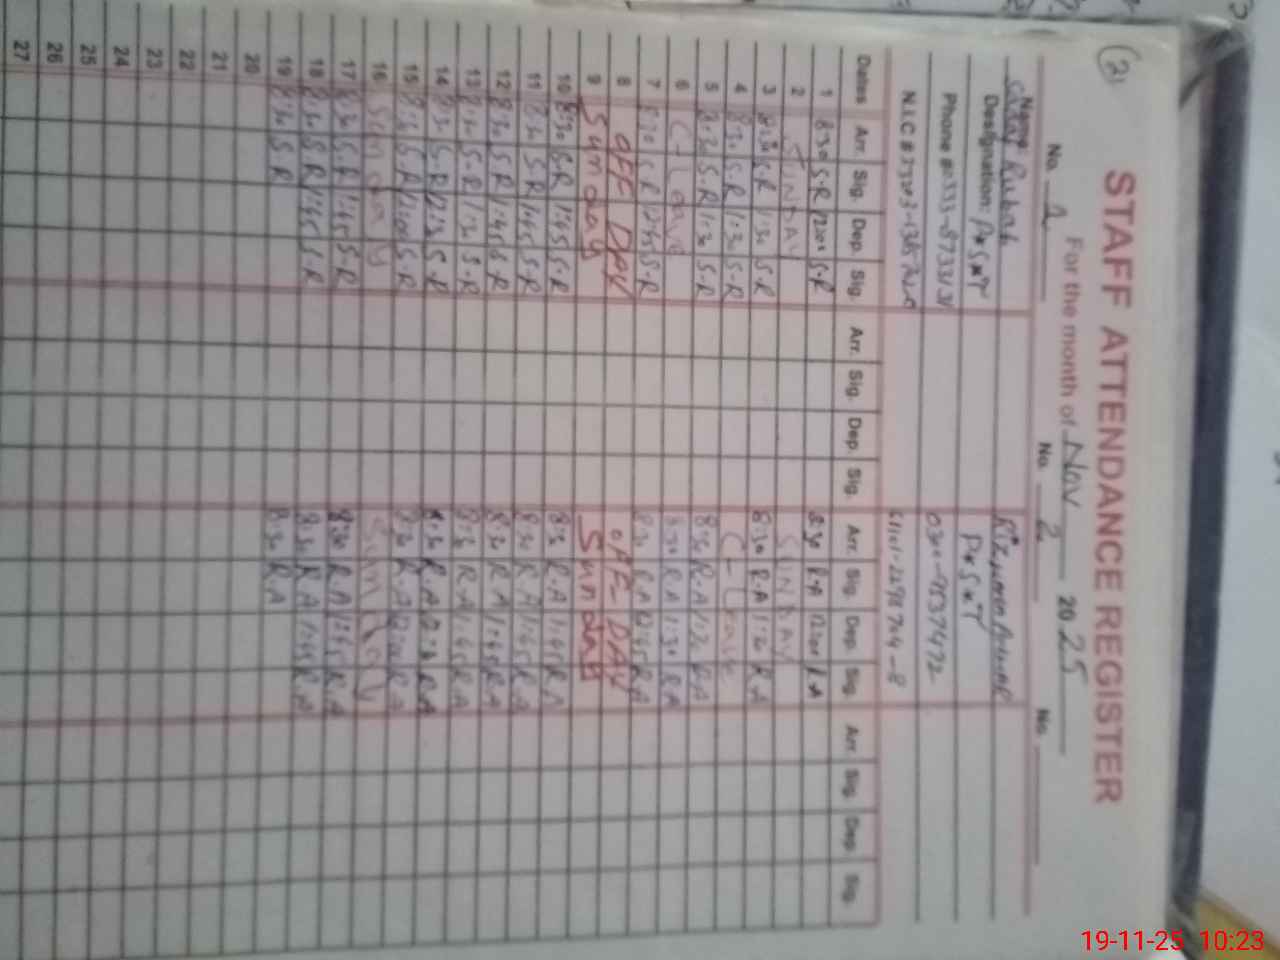 (2)
STAFF ATTENDANCE REGISTER
For the month of Nov 2025
No. 2 No. 2 No.
Name:
Designation: P*S*T P*S*T
Phone # 0333-8733131 0300-9537472
N.I.C #
Dates Arr. Sig. Dep. Sig. Arr. Sig. Dep. Sig. Arr. Sig. Dep. Sig. Arr. Sig. Dep. Sig.
1 8:30 S.R 12:00 S.R 8:30 R.A 12:00 R.A
2 SUNDAY SUNDAY
3 8:30 S.R 1:30 S.R 8:30 R.A 1:30 R.A
4 8:30 S.R 1:30 S.R C-Leave
5 8:30 S.R 1:30 S.R 8:30 R.A 1:30 R.A
6 C-Leave 8:30 R.A 1:30 R.A
7 8:30 S.R 12:45 S.R 8:30 R.A 12:45 R.A
8 OFF DAY OFF-DAY
9 Sunday Sunday
10 8:30 S.R 1:45 S.R 8:30 R.A 1:45 R.A
11 8:30 S.R 1:45 S.R 8:30 R.A 1:45 R.A
12 8:30 S.R 1:45 S.R 8:30 R.A 1:45 R.A
13 8:30 S.R 1:30 S.R 8:30 R.A 1:45 R.A
14 8:30 S.R S.R 8:30 R.A R.A
15 8:30 S.R S.R 8:30 R.A R.A
16 Sunday Sunday
17 8:30 S.R 1:45 S.R 8:30 R.A 1:45 R.A
18 8:30 S.R 1:45 S.R 8:30 R.A 1:45 R.A
19 8:30 S.R 8:30 R.A
20
21
22
23
24
25
26
27
19-11-25 10:23